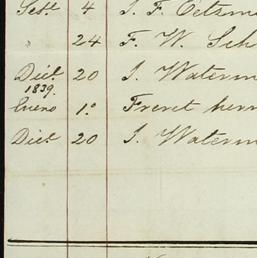 Set. 4 J. F. Oetzm
" 24 F. W. Sch
Dice. 20 J. Waterm
1839.
Enero 1.° Freret herm
Dice. 20 J. Waterm